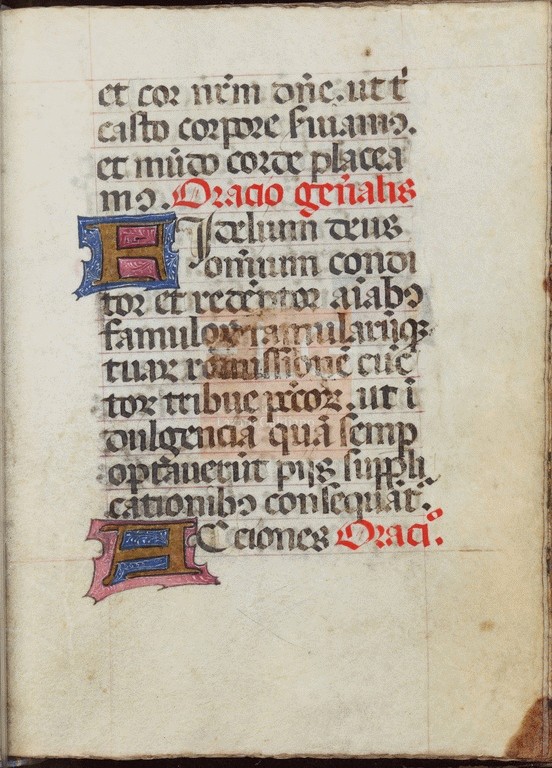 et cor nr̄m dn̄e. ut t
casto corpore s̄uiamꝯ.
et mūdo corde placea
mꝯ. Oracio gen̄alis
FIdelium deus
om̄ium condi
tor et redēptor aīabꝯ
famuloꝝ famularūqꝫ
tuaꝝ remissionē cūc
toꝝ tribue p̄coꝝ. ut ī
dulgenciā quā semp
optauerūt pijs suppli
cationibꝯ consequāt᷑.
ACciones Oraciº.